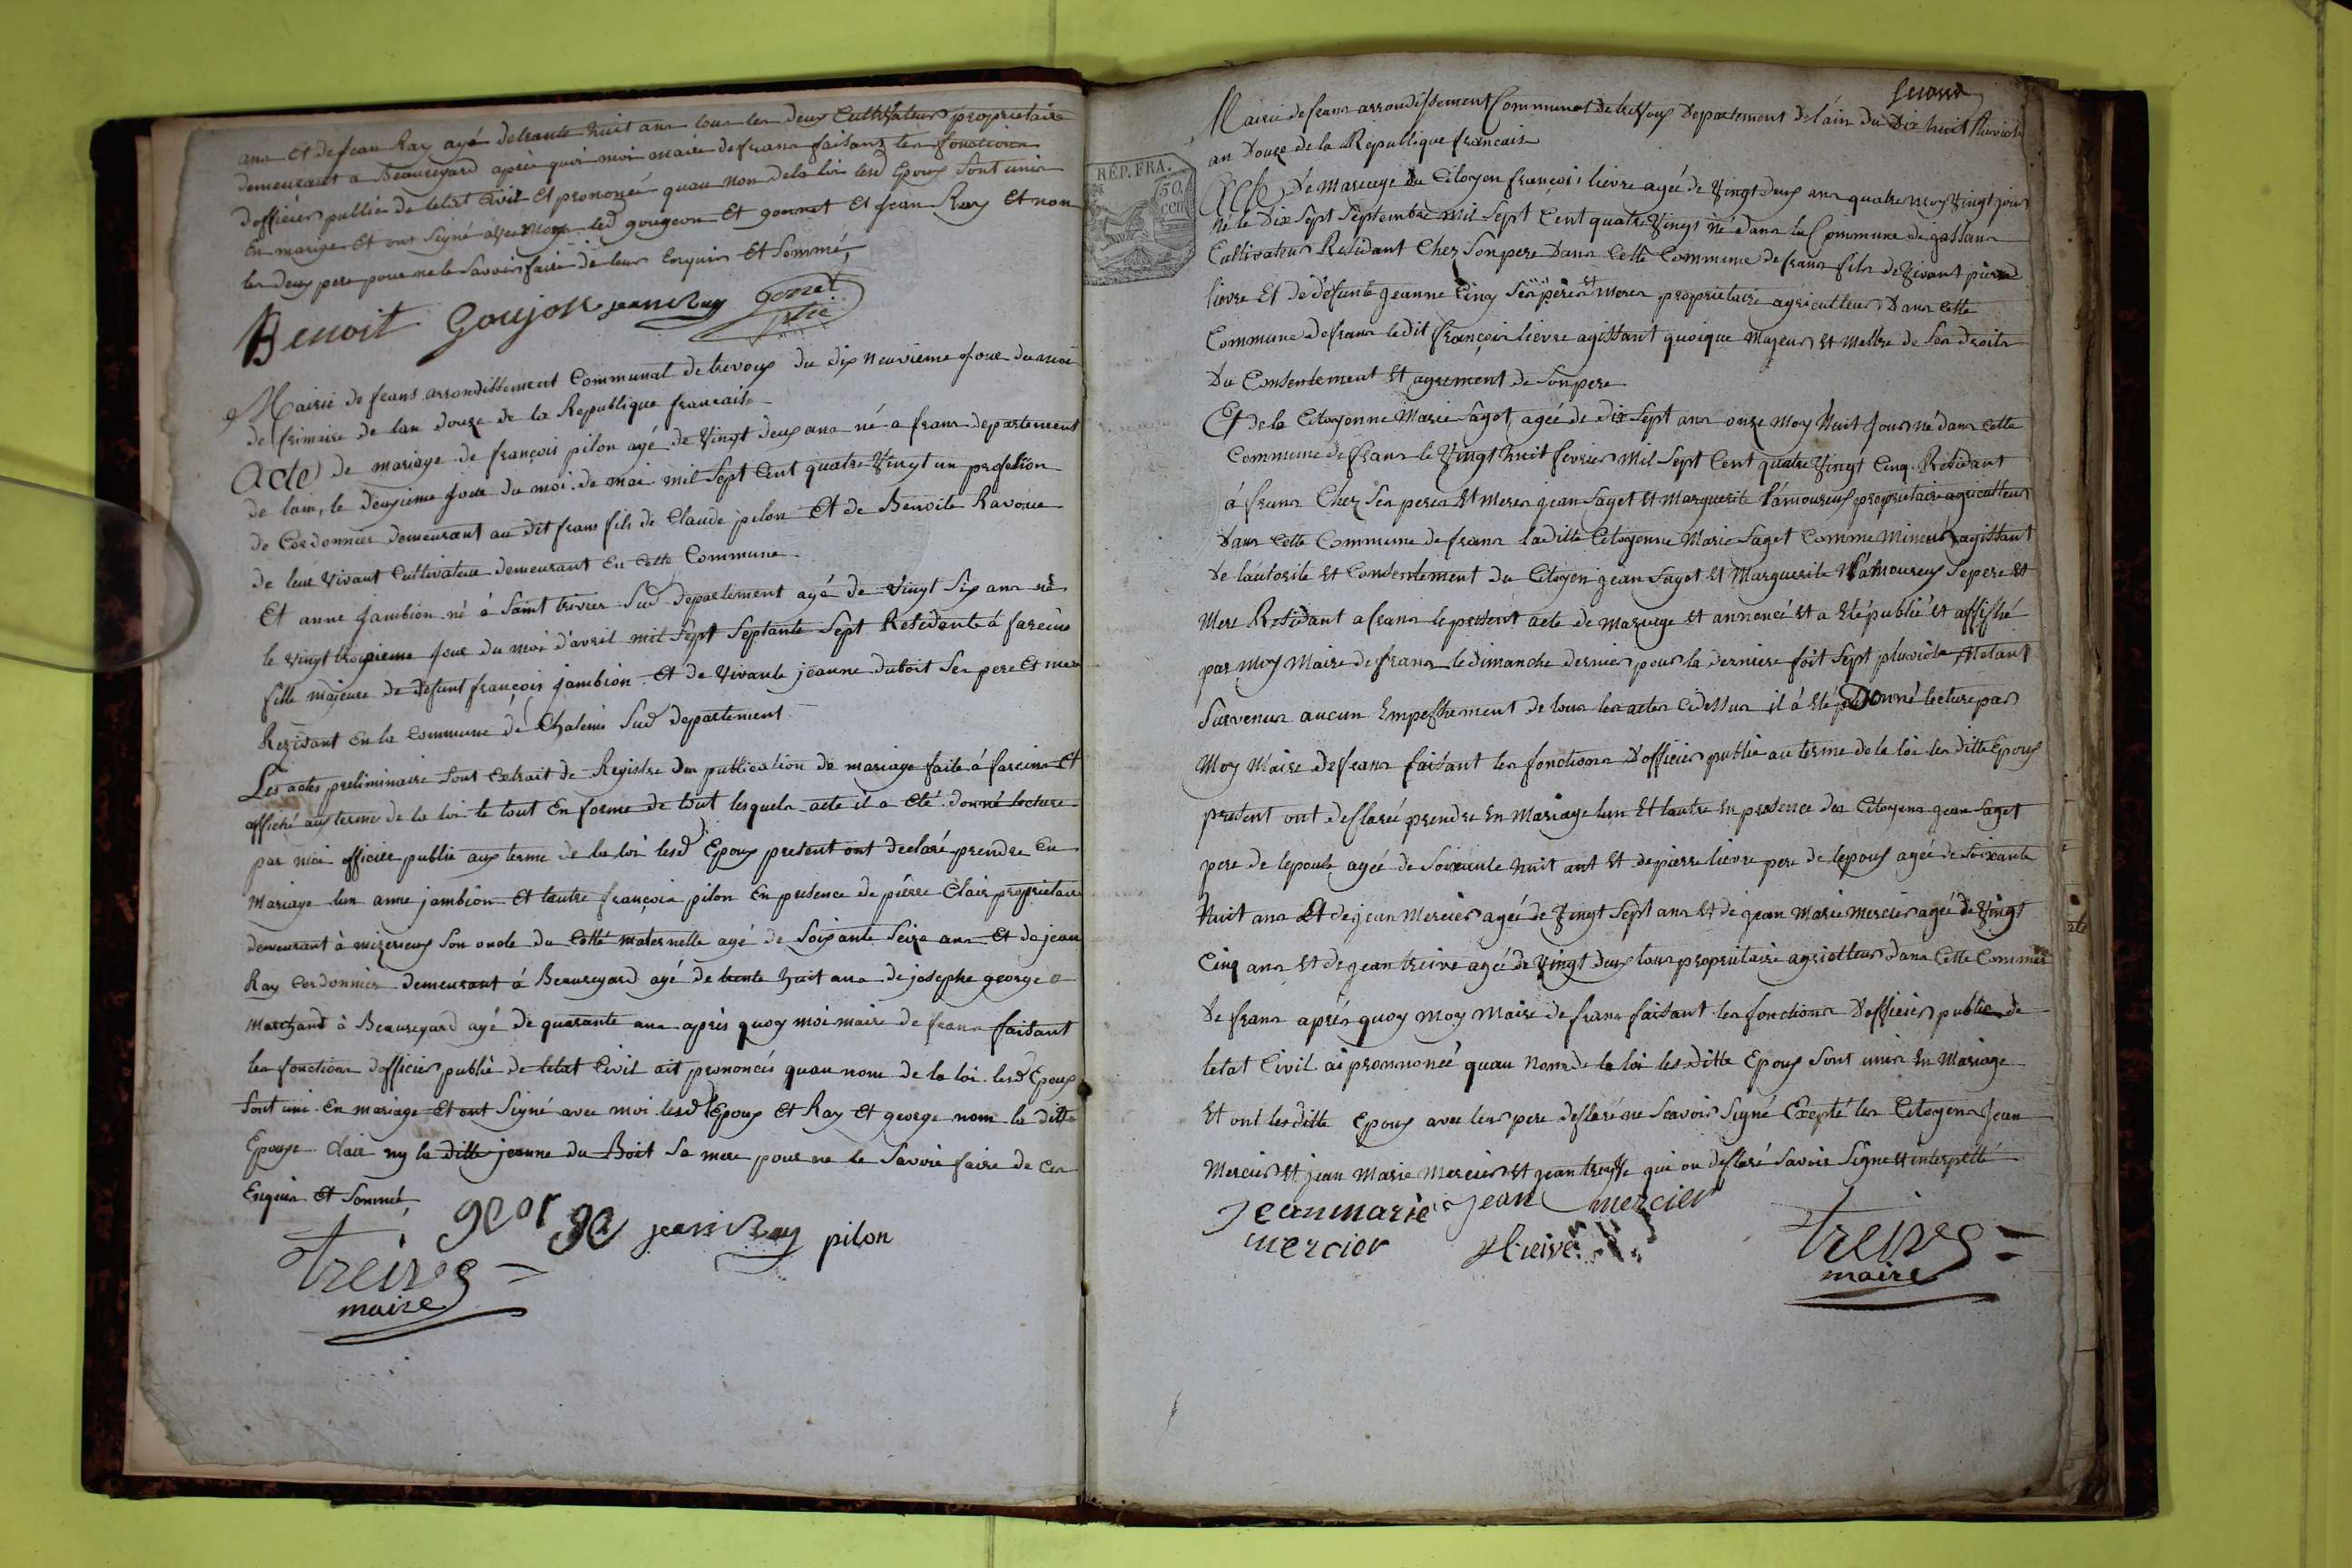 ans Et de jean Ray agé detrante huit ans tous les deux Cultivateurs proprietaire
demeurant a Beauregard aprés quoi moi maire de frans faisant les fonctions
dofficier public de letat Civil Et prononcé quau Non dela loi lesd Epoux Sont unis
En marige Et ont Signé avec moy led gougeon Et gonnet Et jean Ray Et non
les deux pere pour ne le Savoir faire de leur Enquis Et Sommé,
Benoit Goujon jean Ray Gonnet
Mairie de frans arrondissement Communal de trevoux du dix Neuvieme Jour du moi
de frimaire de lan douze de la Republique francaise
Acte de mariage de françois pilon agé de Vingt deux ans né a frans departement
de lain, le deuxieme Jour du moi de mai mil Sept Cent quatre Vingt un profession
de Cordonnier demeurant au dit frans fils de Claude pilon Et de Benoite Ravoux
de leur Vivant Cultivateur demeurant En Cette Commune
Et anne Jambion né à Saint trivier Sud departement agé de Vingt Six ans né
le vingt troisieme Jour du moi d'avril mil Sept Septante Sept Residante á fareins
fille majeure de defunt françois jambion Et de Vivante jeanne dubois Ses pere Et mere
Rezidant En la Commune de Chaleins Sud departement
Les actes preliminaire Sont Extrait de Registre des publication de mariage faite á fareins Et
affiché aux terme de la loi le tout En forme de tout lesquels acte il a Eté donné lecture
par moi officier public aux terme de la loi lesd Epoux present ont declaré prendre En
Mariage lun anne jambion Et lautre françois pilon En presence de piérre Clair proprietaire
demeurant à mizerieux Son oncle du Cotté maternelle agé de Soixante Seize ans Et de jean
Ray Cordonnier demeurant á Beauregard agé de trente huit ans de josephe george
Marchand à Beauregard agé de quarante ans aprés quoy moi maire de frans faisant
les fonctions dofficier public de letat Civil ait prononcés quau nom de la loi lesd Epoux
Sont uni En mariage Et ont Signé avec moi lesd Epoux Et Ray Et george nom la ditte
Epouse Clair ny la ditte jeanne du Bois Sa mere pour ne le Savoir faire de Ces
Enquis Et Sommé,
george jean Ray pilon
treive
maire
Second
Mairie de frans arrondissement Communal de trevoux Departement de láin du Dix huit Pluviose
an Douze de la République francaise
RÉP. FRA.
50 cen
Acte De Mariage du Citoyen françois lievre ageé de Vingt deux ans quatre moy Vingt jour
Né le Dix Sept Septembre mil Sept Cent quatre Vingt né dans la Commune de gassans
Cultivateur Residant Chez Son pere Dans Cette Commune de frans fils de Vivant pierre
lievre Et de defunte Jeanne Cinq Ses péres et Meres proprietaire agriculteur Dans Cette
Commune de frans le dit françois lievre agissant quoique Majeur Et Mettre de Ses droits
Du Consentement Et agrement de Son pere
Et de la Citoyenne Marie Saget ageé de dix Sept ans onze Moy Huit Jour né dans Cette
Commune de frans le Vingt huit fevrier Mil Sept Cent quatre Vingt Cinq Residant
á frans Chez Ses peres Et Meres jean Saget Et Marguerite Lámoureux proprietaire agriculteur
Dans Cette Commune de frans la ditte Citoyenne Marie Saget Comme Mineur agissant
De lautorité Et Consentement du Citoyen jean Saget Et Marguerite Lámoureux Se pere Et
Mere Residant a frans le present acte de Mariage Et annoncé Et a Eté publié Et affiché
par Moy Maire de frans le dimanche dernier pour la derniere fois Sept pluviose Netant
Survenus aucun Empeschement de tous les actes Cidessus il á Eté Donné lecture par
Moy Maire de frans faisant les fonctions Dofficier public au terme de la loi les ditte Epoux
present ont desclaré prendre En Mariage lun Et lautre En presence des Citoyens jean Saget
pere de lepouse ageé de Soixante huit ant Et de pierre lievre pere de lepoux ageé de Soixante
Huit ans Et de jean Mercier ageé de Vingt Sept ans Et de jean Marie Mercier ageé de Vingt
Cinq ans Et de jean treive ageé de Vingt deux tous proprietaire agriculteur dans Cette Commune
De frans aprés quoy Moy Maire de frans faisant les fonctions Dofficier public de
letat Civil ai pronnoncé quau Nom de la loi les ditte Epoux Sont unis En Mariage
Et ont les ditte Epoux avec leur pere desclaré ne Scavoir Signé Excepté les Citoyens Jean
Mercier Et jean Marie Mercier Et jean treive qui on desclaré Savoir Signe Et interpellé
Jeanmarie Jean mercier
mercier treive
treive
maire